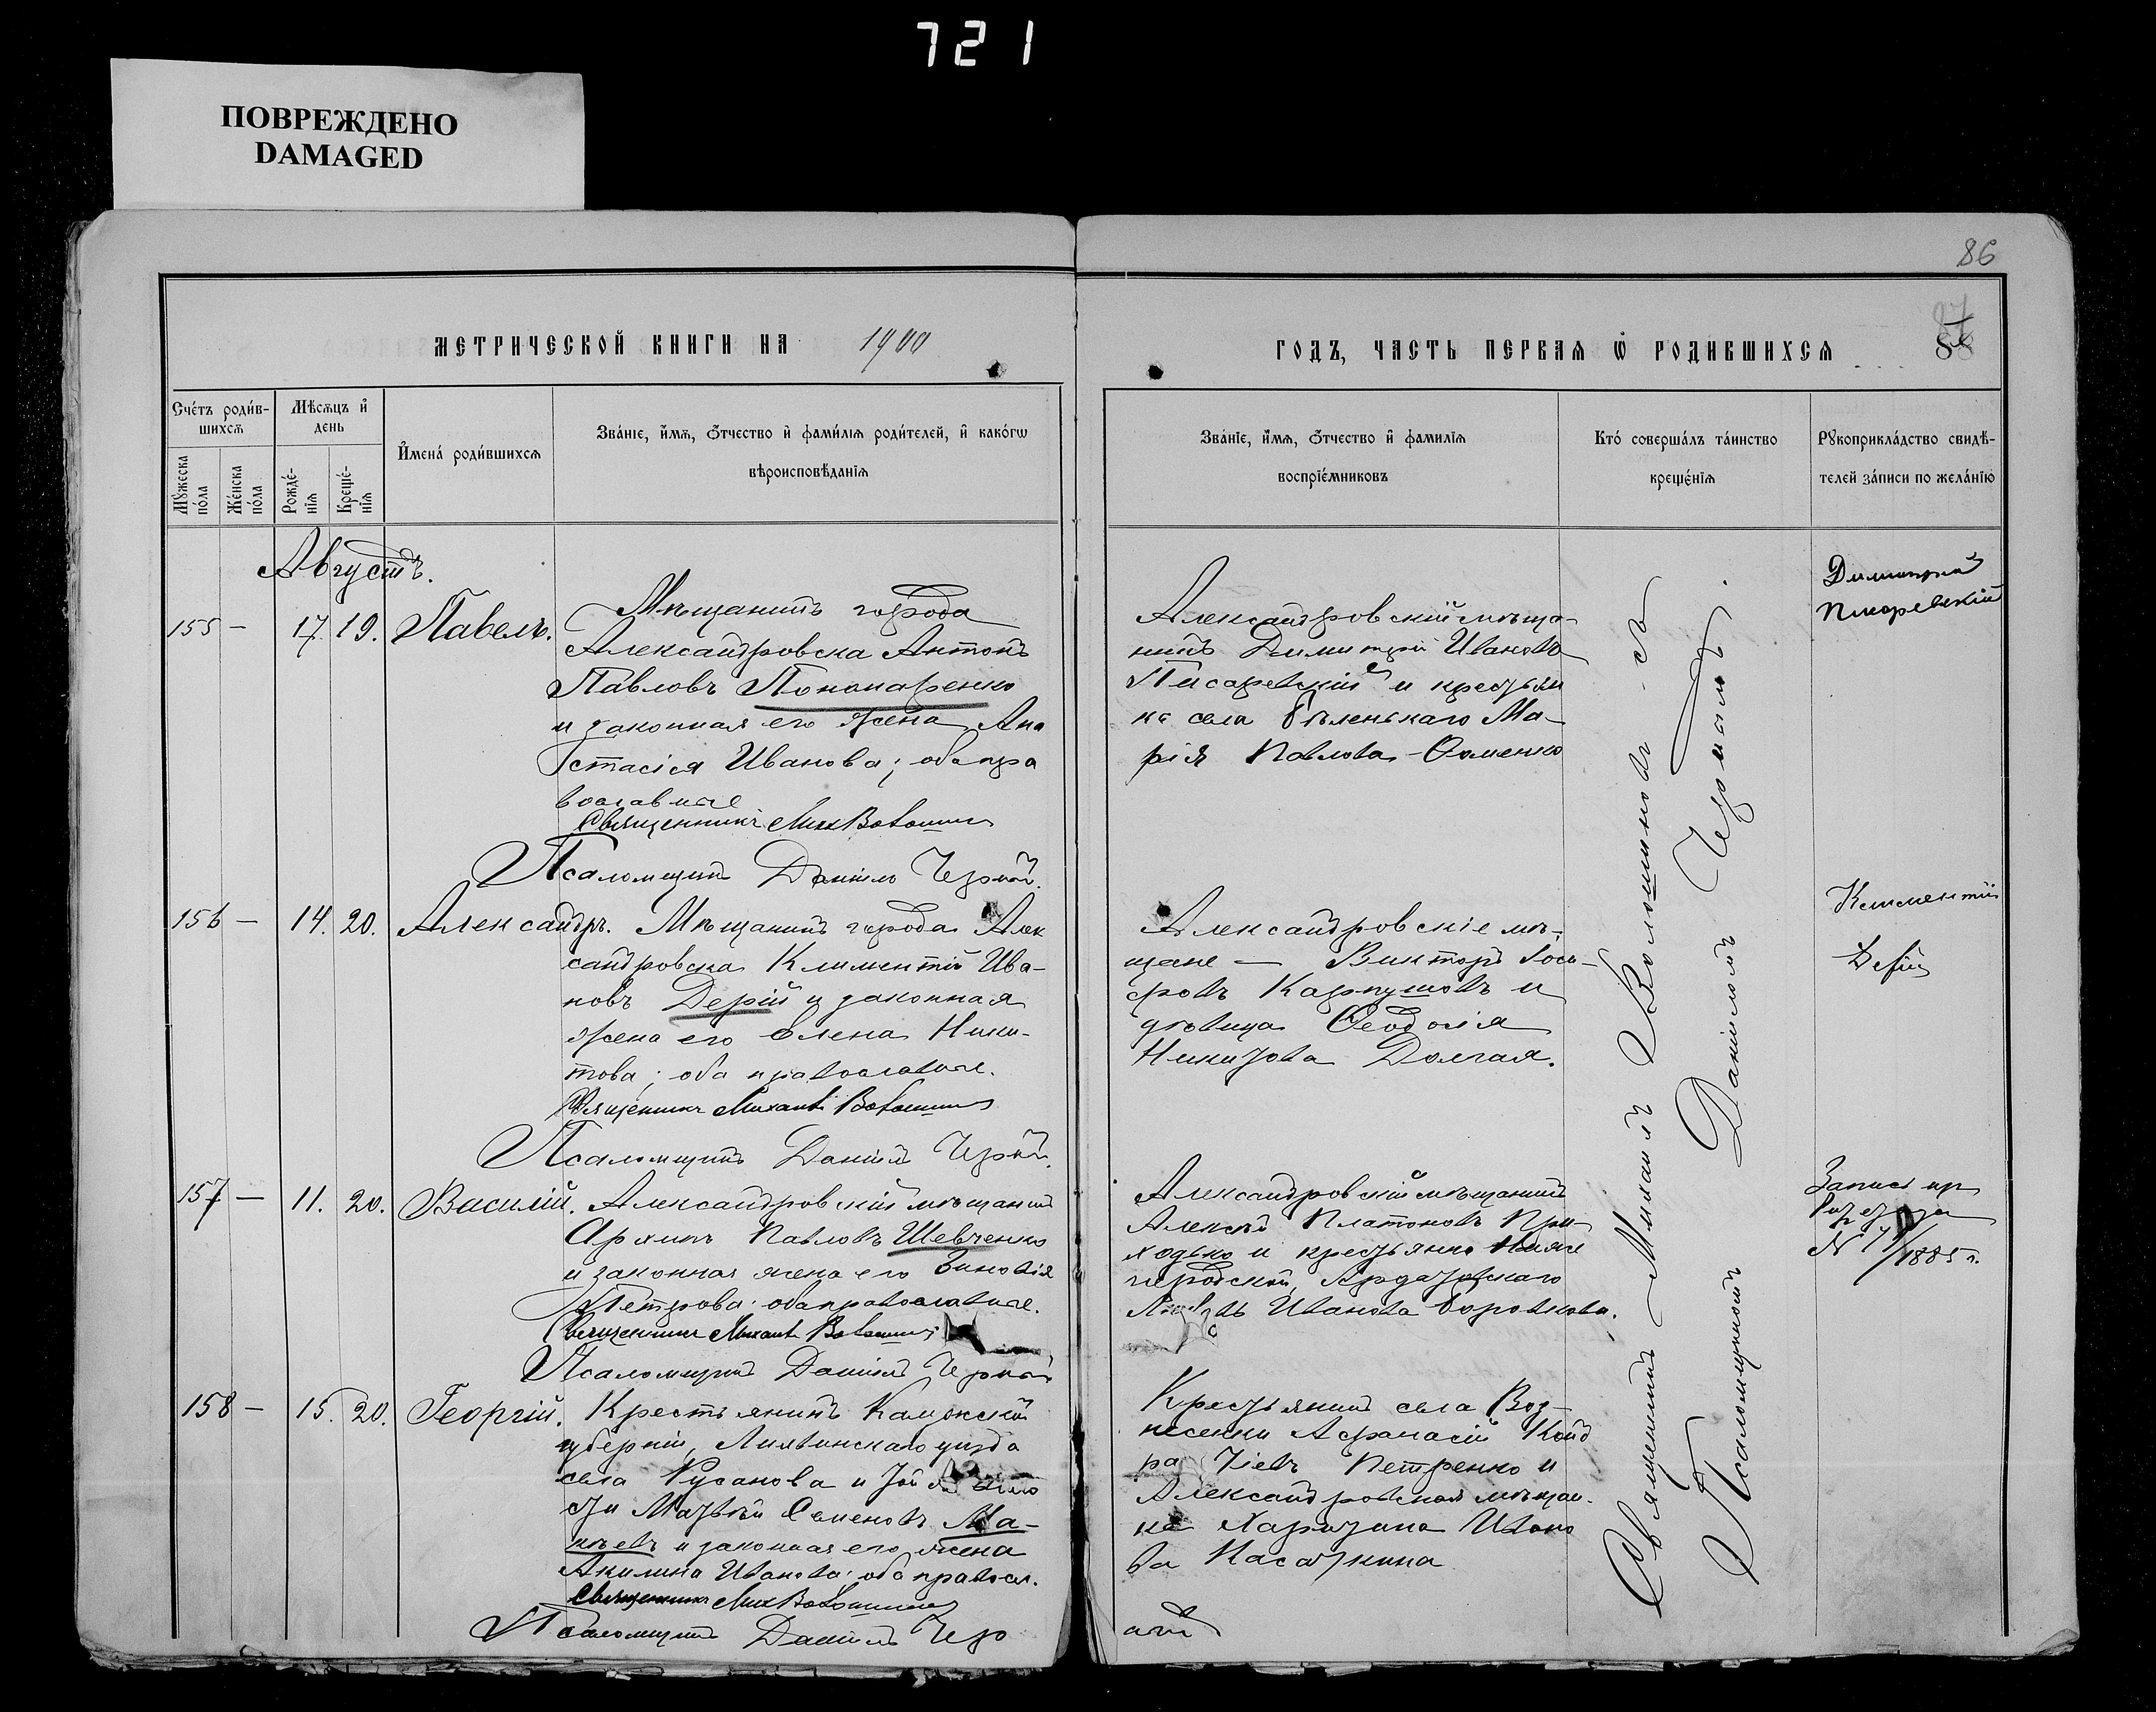 721
ПОВРЕЖДЕНО
DAMAGED
86
МЕТРИЧЕСКОЙ КНИГИ НА 1900
ГОДЪ, ЧАСТЬ ПЕРВАЯ Ѿ РОДИВШИХСЯ
Счéтъ роди́в-
шихсѧ
Мꙋжеска
по́ла
Же́нска
по́ла
Мѣ́сѧцъ и҆
день
Рожде́-
нїѧ
Креще́-
нїѧ
И҆мена́ роди́вшихсѧ
Зва́нїе, и҆́мѧ, ѻ҆́тчество и҆ фами́лїѧ роди́телей, и҆ како́гѡ
вѣроисповѣ́данїѧ
Зва́нїе, и҆́мѧ, ѻ҆́тчество и҆ фами́лїѧ
воспрїе́мниковъ
Кто́ соверша́лъ та́инство
креще́нїѧ
Рꙋкоприкла́дство свидѣ́-
телей за́писи по жела́нїю
Августъ.
155 — 17. 19. Павелъ.
Мѣщанинъ города
Александровска Антонъ
Павловъ Пономаренко
и законная его жена Ана
стасія Иванова; оба пра
вославные
Священникъ Мих Волошинъ
Псаломщикъ Даніилъ Черный.
Александровскій мѣща-
нинъ Димитрій Ивановъ
Писаревскій и крестьян
ка села Бѣленькаго Ма-
рія Павлова
Димитрій
Писаревскій
156 — 14. 20. Александръ.
Мѣщанинъ города Алек
сандровска Климентій Ива-
новъ Дерій и законная
жена его Елена Ники-
това; оба православные.
Священникъ Михаилъ Волошинъ
Псаломщикъ Даніилъ Черный.
Александровскіе мѣ-
щане — Викторъ
Карпушовъ и
дѣвица Ѳеодосія
Никитова Долгая.
Климентій
Дерій
157 — 11. 20. Василій.
Александровскій мѣщанинъ
Архипъ Павловъ Шевченко
и законная жена его Зиновія
Петрова; оба православные.
Священникъ Михаилъ Волошинъ
Псаломщикъ Даніилъ Черный
Александровскій мѣщанинъ
Алексѣй Платоновъ При-
ходько и крестьянка Ниже
городской, Ардатовскаго
Иванова Боровкова.
Запись
/1885 г.
158 — 15. 20. Георгій.
Крестьянинъ Калужской
губерніи, уѣзда
села Русанова и
Матвѣй Семеновъ Ма-
кѣевъ и законная его жена
Акилина Иванова; оба правосл.
Священникъ Мих Волошинъ
Псаломщикъ Даніилъ Чер
Крестьянинъ села Воз-
несенки Афанасій Конд
ратіевъ Петренко и
Александровская мѣщан-
ка Харитина Ивано
ва Касаткина
ный
Священникъ Михаилъ Волошиновъ съ
Псаломщикомъ Даніиломъ Чернымъ.